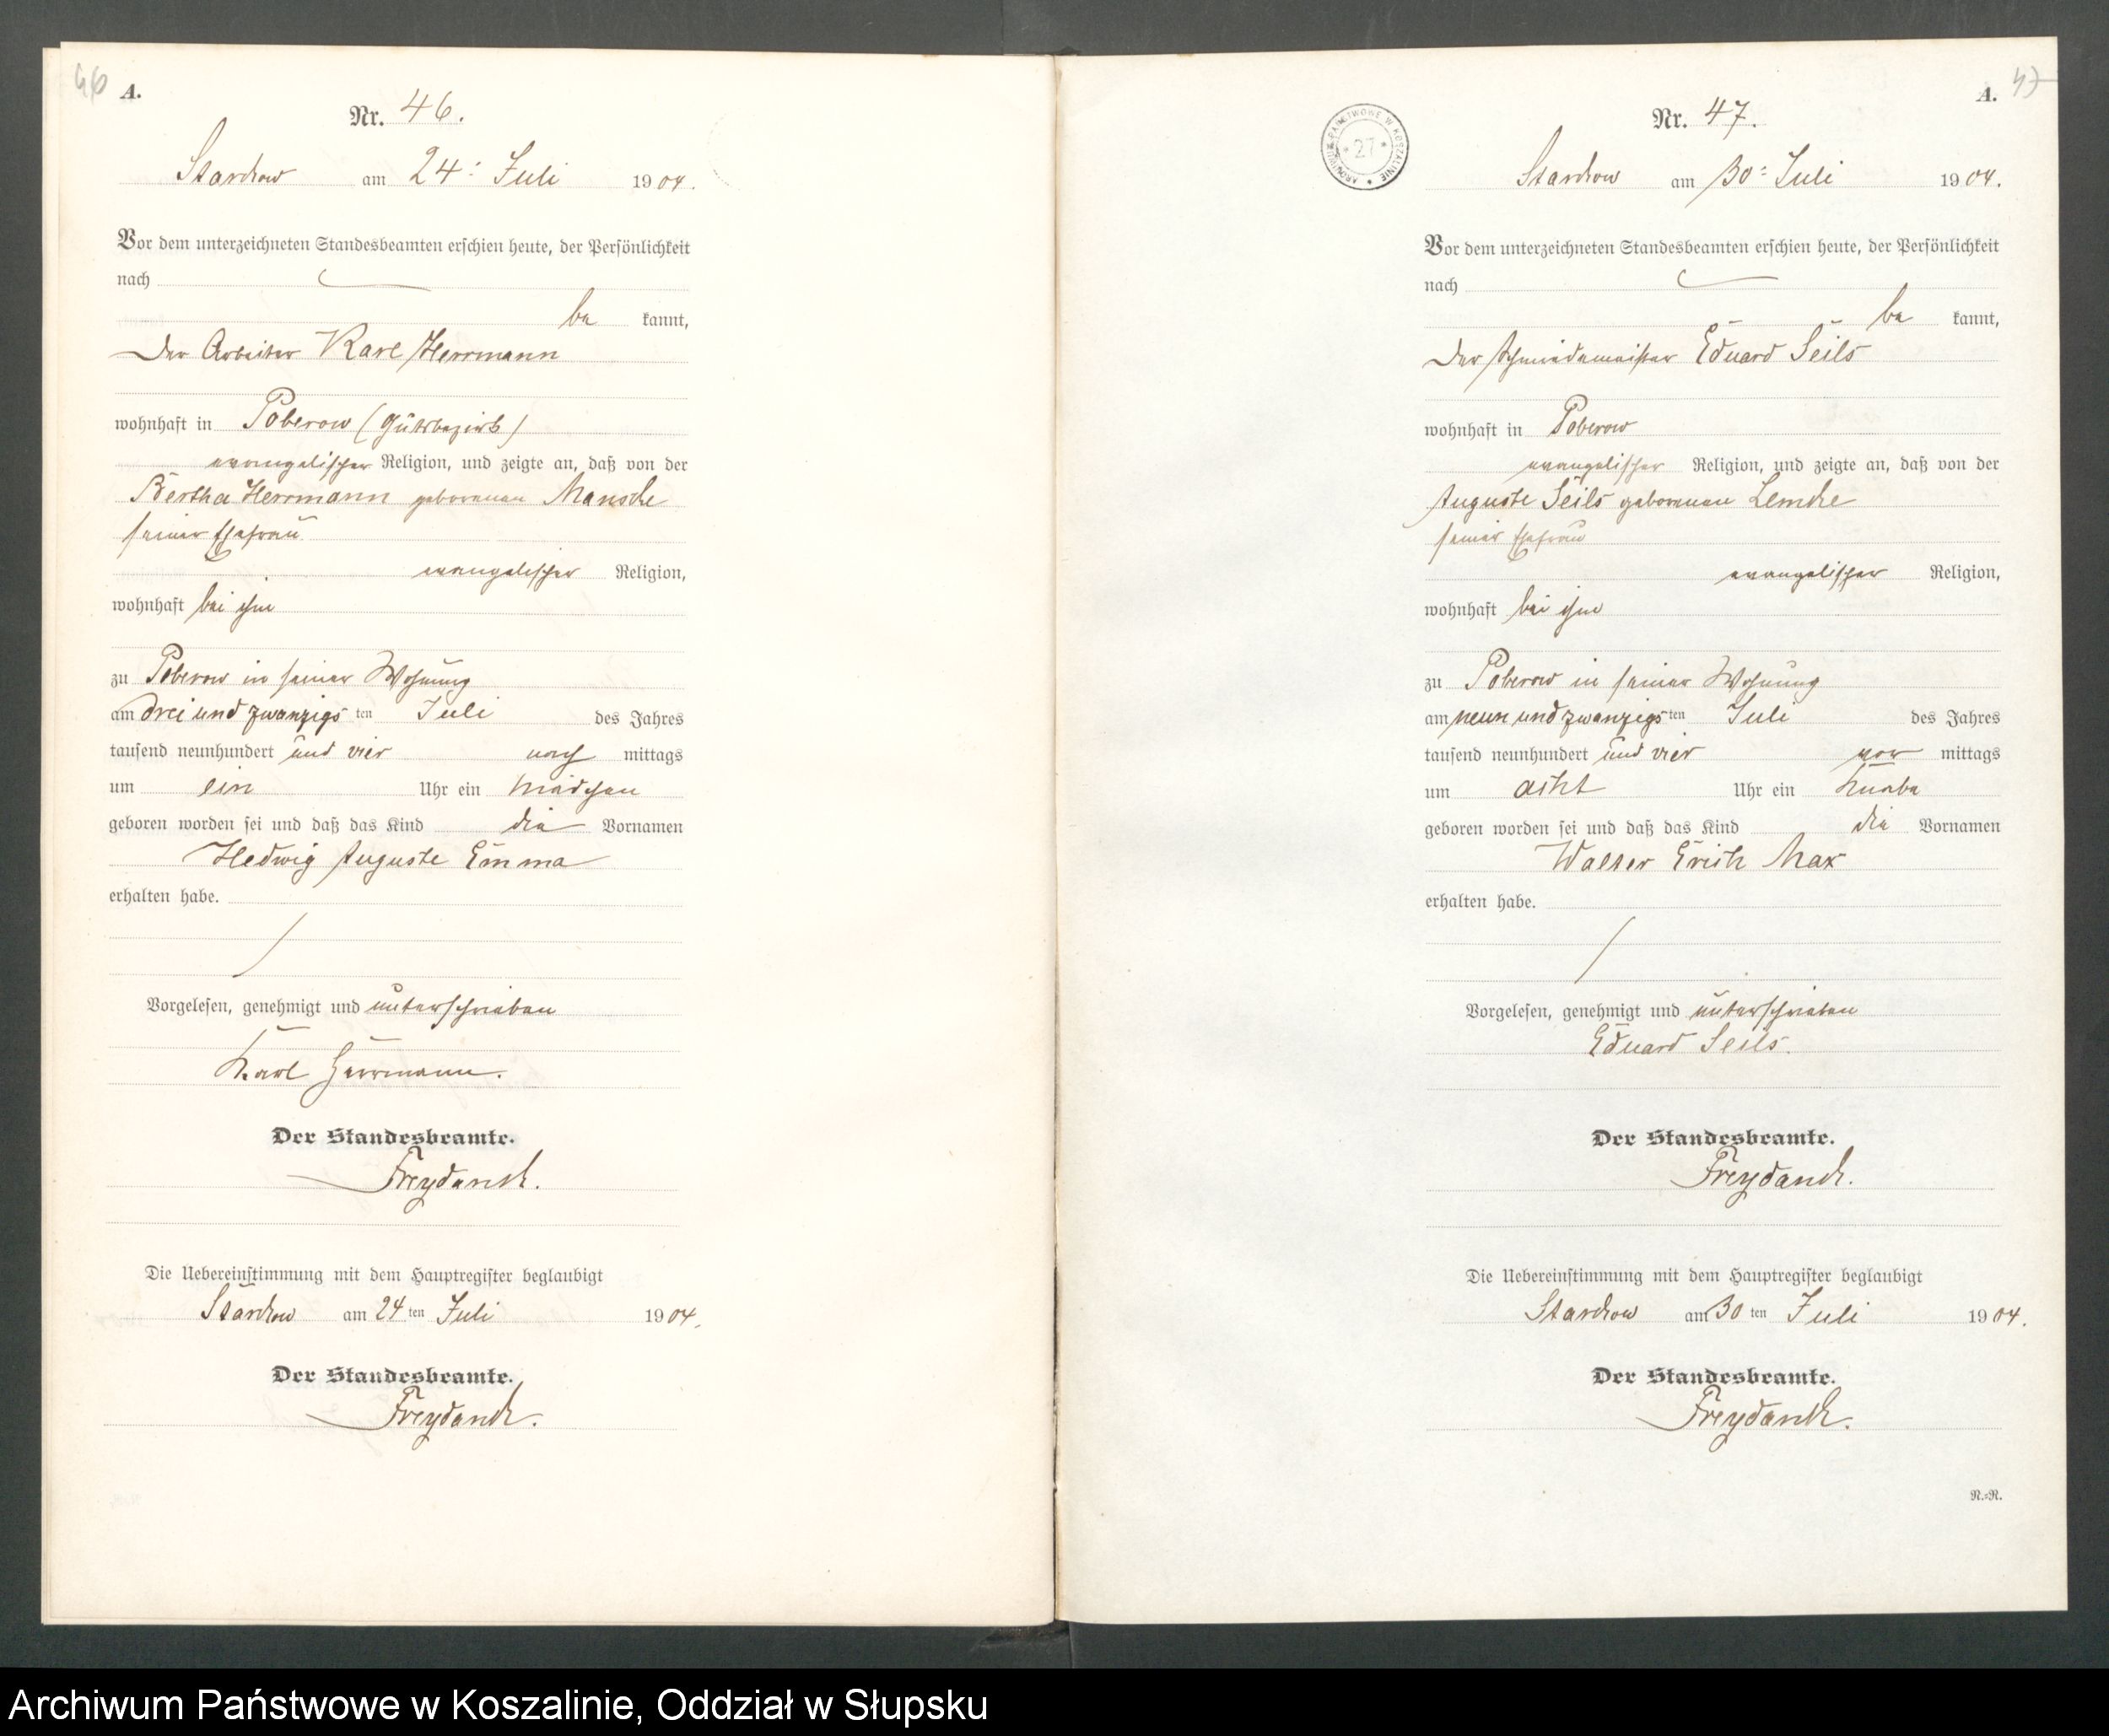 46
A.
Nr. 46.
Starckow am 24: Juli 1904.
Vor dem unterzeichneten Standesbeamten erschien heute, der Persönlichkeit
nach
be kannt,
Der Arbeiter Karl Herrmann
wohnhaft in Poberow (Gutsbezirk)
evangelischer Religion, und zeigte an, daß von der
Bertha Herrmann geborenen Manscke
seiner Ehefrau
evangelischer Religion,
wohnhaft bei ihm
zu Poberow in seiner Wohnung
am drei und zwanzigs ten Juli des Jahres
tausend neunhundert und vier nach mittags
um ein Uhr ein Mädchen
geboren worden sei und daß das Kind die Vornamen
Hedwig Auguste Emma
erhalten habe.
Vorgelesen, genehmigt und unterschrieben
Karl Herrmann.
Der Standesbeamte.
Freydanck.
Die Uebereinstimmung mit dem Hauptregister beglaubigt
Starckow am 24 ten Juli 1904.
Der Standesbeamte.
Freydanck.
47
A.
ARCHIWUM PAŃSTWOWE W KOSZALINIE
* 27 *
Nr. 47.
Starckow am 30: Juli 1904.
Vor dem unterzeichneten Standesbeamten erschien heute, der Persönlichkeit
nach
be kannt,
Der Schmiedemeister Eduard Seils
wohnhaft in Poberow
evangelischer Religion, und zeigte an, daß von der
Auguste Seils geborenen Lemcke
seiner Ehefrau
evangelischer Religion,
wohnhaft bei ihm
zu Poberow in seiner Wohnung
am neun und zwanzigs ten Juli des Jahres
tausend neunhundert und vier vor mittags
um acht Uhr ein Knabe
geboren worden sei und daß das Kind die Vornamen
Walter Erich Max
erhalten habe.
Vorgelesen, genehmigt und unterschrieben
Eduard Seils.
Der Standesbeamte.
Freydanck.
Die Uebereinstimmung mit dem Hauptregister beglaubigt
Starckow am 30 ten Juli 1904.
Der Standesbeamte.
Freydanck.
R.=R.
Archiwum Państwowe w Koszalinie, Oddział w Słupsku